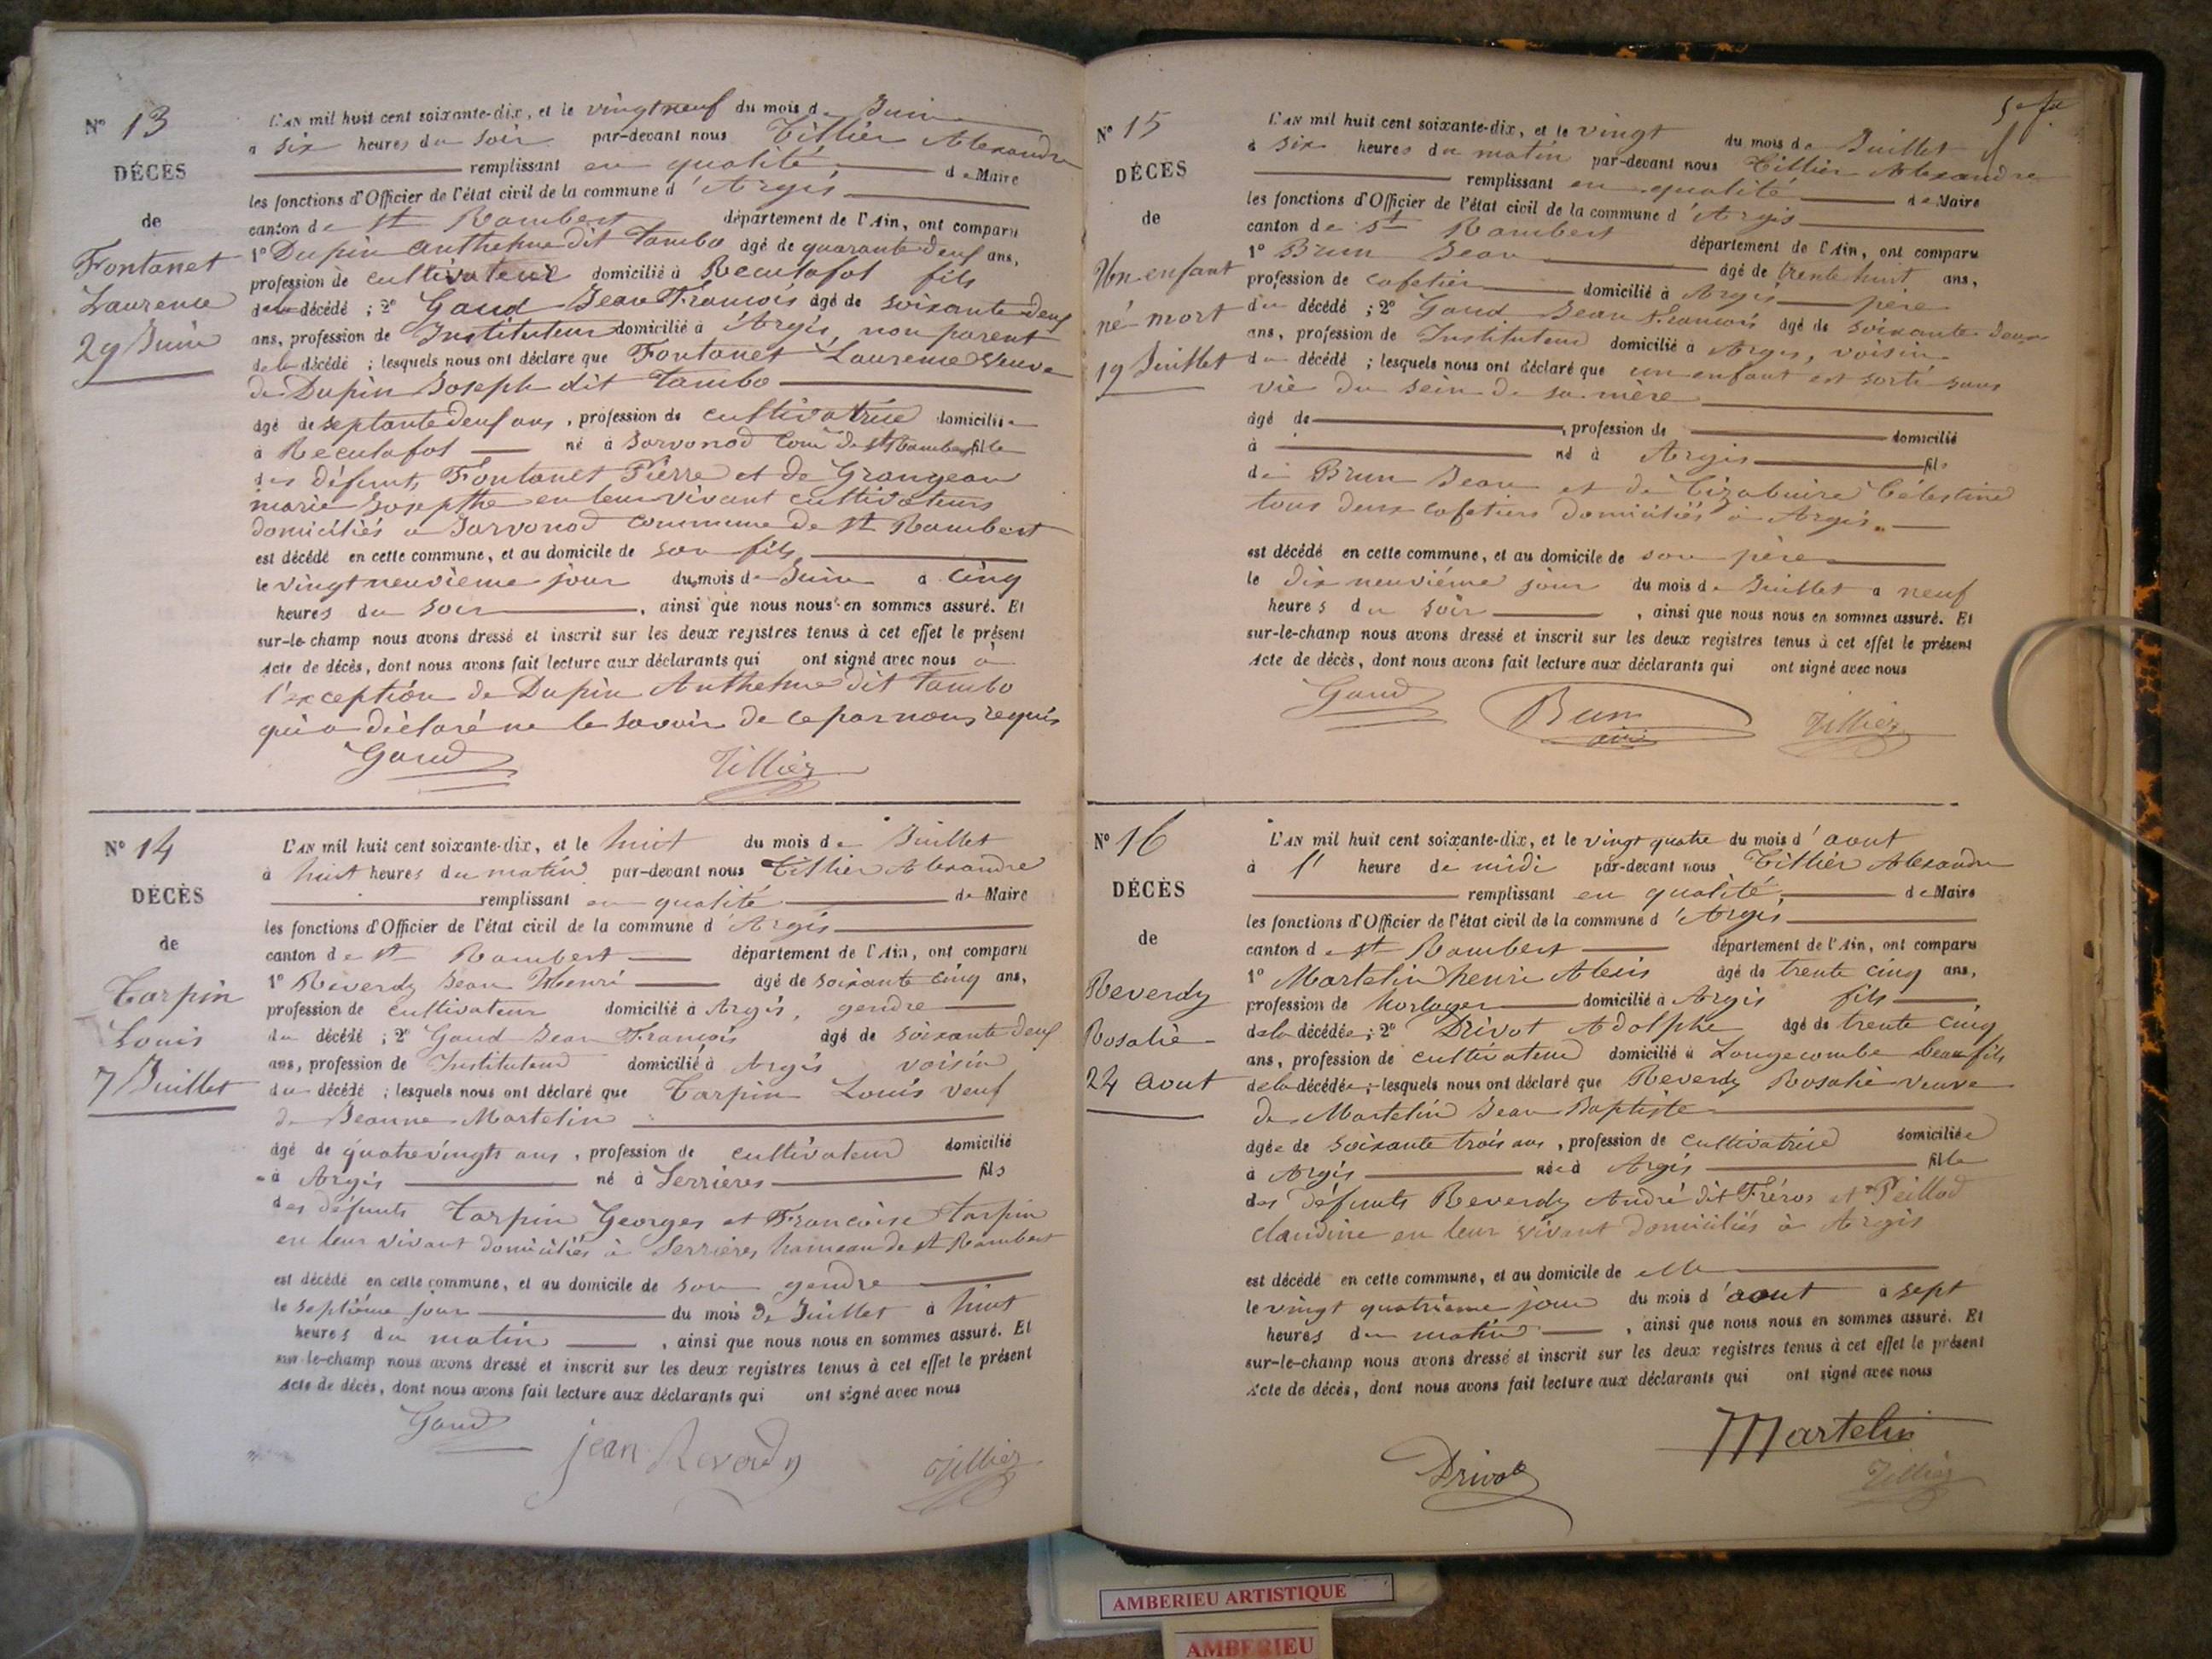 N° 13
DÉCÈS
de
Fontanet
Laurence
29 Juin
L'AN mil huit cent soixante-dix, et le vingt neuf du mois de Juin
à six heures du soir par-devant nous Tillier Alexandre
remplissant en qualité de Maire
les fonctions d'Officier de l'état civil de la commune d'Argis
canton de St Rambert département de l'Ain, ont comparu
1° Dupin Anthelme dit Tambo âgé de quarante deux ans,
profession de cultivateur domicilié à Reculafol fils
de la décédé ; 2° Gaud Jean François âgé de soixante deux
ans, profession de Instituteur domicilié à Argis, non parent
de la décédé ; lesquels nous ont déclaré que Fontanet Laurence veuve
de Dupin Joseph dit Tambo
âgé de septante deux ans, profession de cultivatrice domiciliée
à Reculafol né à Javornod Com de St Rambert fille
des défunts Fontanet Pierre et de Grangean
marie Josepthe en leur vivant cultivateurs
domiciliés à Javornod commune de St Rambert
est décédé en cette commune, et au domicile de son fils
le vingt neuvième jour du mois de Juin à cinq
heures du soir, ainsi que nous nous en sommes assuré. Et
sur-le-champ nous avons dressé et inscrit sur les deux registres tenus à cet effet le présent
acte de décès, dont nous avons fait lecture aux déclarants qui ont signé avec nous à
l'exception de Dupin Anthelme dit Tambo
qui a déclaré ne le savoir de ce par nous requis
Gaud Tillier
N° 14
DÉCÈS
de
Tarpin
Louis
7 Juillet
L'AN mil huit cent soixante-dix, et le huit du mois de Juillet
à huit heures du matin par-devant nous Tillier Alexandre
remplissant en qualité de Maire
les fonctions d'Officier de l'état civil de la commune d'Argis
canton de St Rambert département de l'Ain, ont comparu
1° Reverdy Jean Henri âgé de soixante cinq ans,
profession de cultivateur domicilié à Argis, gendre
du décédé ; 2° Gaud Jean François âgé de soixante deux
ans, profession de Instituteur domicilié à Argis voisin
du décédé ; lesquels nous ont déclaré que Tarpin Louis veuf
de Jeanne Martelin
âgé de quatrevingts ans, profession de cultivateur domicilié
à Argis né à Serrières fils
des défunts Tarpin Georges et Françoise Tarpin
en leur vivant domiciliés à Serrières, hameau de St Rambert
est décédé en cette commune, et au domicile de son gendre
le septième jour du mois de Juillet à huit
heures du matin, ainsi que nous nous en sommes assuré. Et
sur-le-champ nous avons dressé et inscrit sur les deux registres tenus à cet effet le présent
acte de décès, dont nous avons fait lecture aux déclarants qui ont signé avec nous
Gaud jean Reverdy Tillier
N° 15
DÉCÈS
de
Un enfant
né mort
19 Juillet
L'AN mil huit cent soixante-dix, et le vingt du mois de Juillet
à six heures du matin par-devant nous Tillier Alexandre
remplissant en qualité de Maire
les fonctions d'Officier de l'état civil de la commune d'Argis
canton de St Rambert département de l'Ain, ont comparu
1° Brun Jean âgé de trente huit ans,
profession de cafetier domicilié à Argis père
du décédé ; 2° Gaud Jean François âgé de soixante deux
ans, profession de Instituteur domicilié à Argis, voisin
du décédé ; lesquels nous ont déclaré que un enfant est sorti sans
vie du sein de sa mère
âgé de , profession de domicilié
à né à Argis fils
de Brun Jean et de Célestine
tous deux cafetiers domiciliés à Argis.
est décédé en cette commune, et au domicile de son père
le dix neuvième jour du mois de Juillet à neuf
heures du soir, ainsi que nous nous en sommes assuré. Et
sur-le-champ nous avons dressé et inscrit sur les deux registres tenus à cet effet le présent
acte de décès, dont nous avons fait lecture aux déclarants qui ont signé avec nous
Gaud Brun Tillier
N° 16
DÉCÈS
de
Reverdy
Rosalie
24 aout
L'AN mil huit cent soixante-dix, et le vingt quatre du mois d'aout
à 1 heure de midi par-devant nous Tillier Alexandre
remplissant en qualité, de Maire
les fonctions d'Officier de l'état civil de la commune d'Argis
canton de St Rambert département de l'Ain, ont comparu
1° Martelin henri Alexis âgé de trente cinq ans,
profession de horloger domicilié à Argis fils
de la décédée ; 2° Drivot Adolphe âgé de trente cinq
ans, profession de cultivateur domicilié à Longecombe beau fils
de la décédée ; lesquels nous ont déclaré que Reverdy Rosalie veuve
de Martelin Jean Baptiste
âgée de soixante trois ans, profession de cultivatrice domiciliée
à Argis née à Argis fille
des défunts Reverdy André dit Fréros et Peillod
claudine en leur vivant domiciliés à Argis
est décédé en cette commune, et au domicile de elle
le vingt quatrième jour du mois d'aout à sept
heures du matin, ainsi que nous nous en sommes assuré. Et
sur-le-champ nous avons dressé et inscrit sur les deux registres tenus à cet effet le présent
acte de décès, dont nous avons fait lecture aux déclarants qui ont signé avec nous
Martelin
Drivot Tillier
AMBERIEU ARTISTIQUE
AMBERIEU